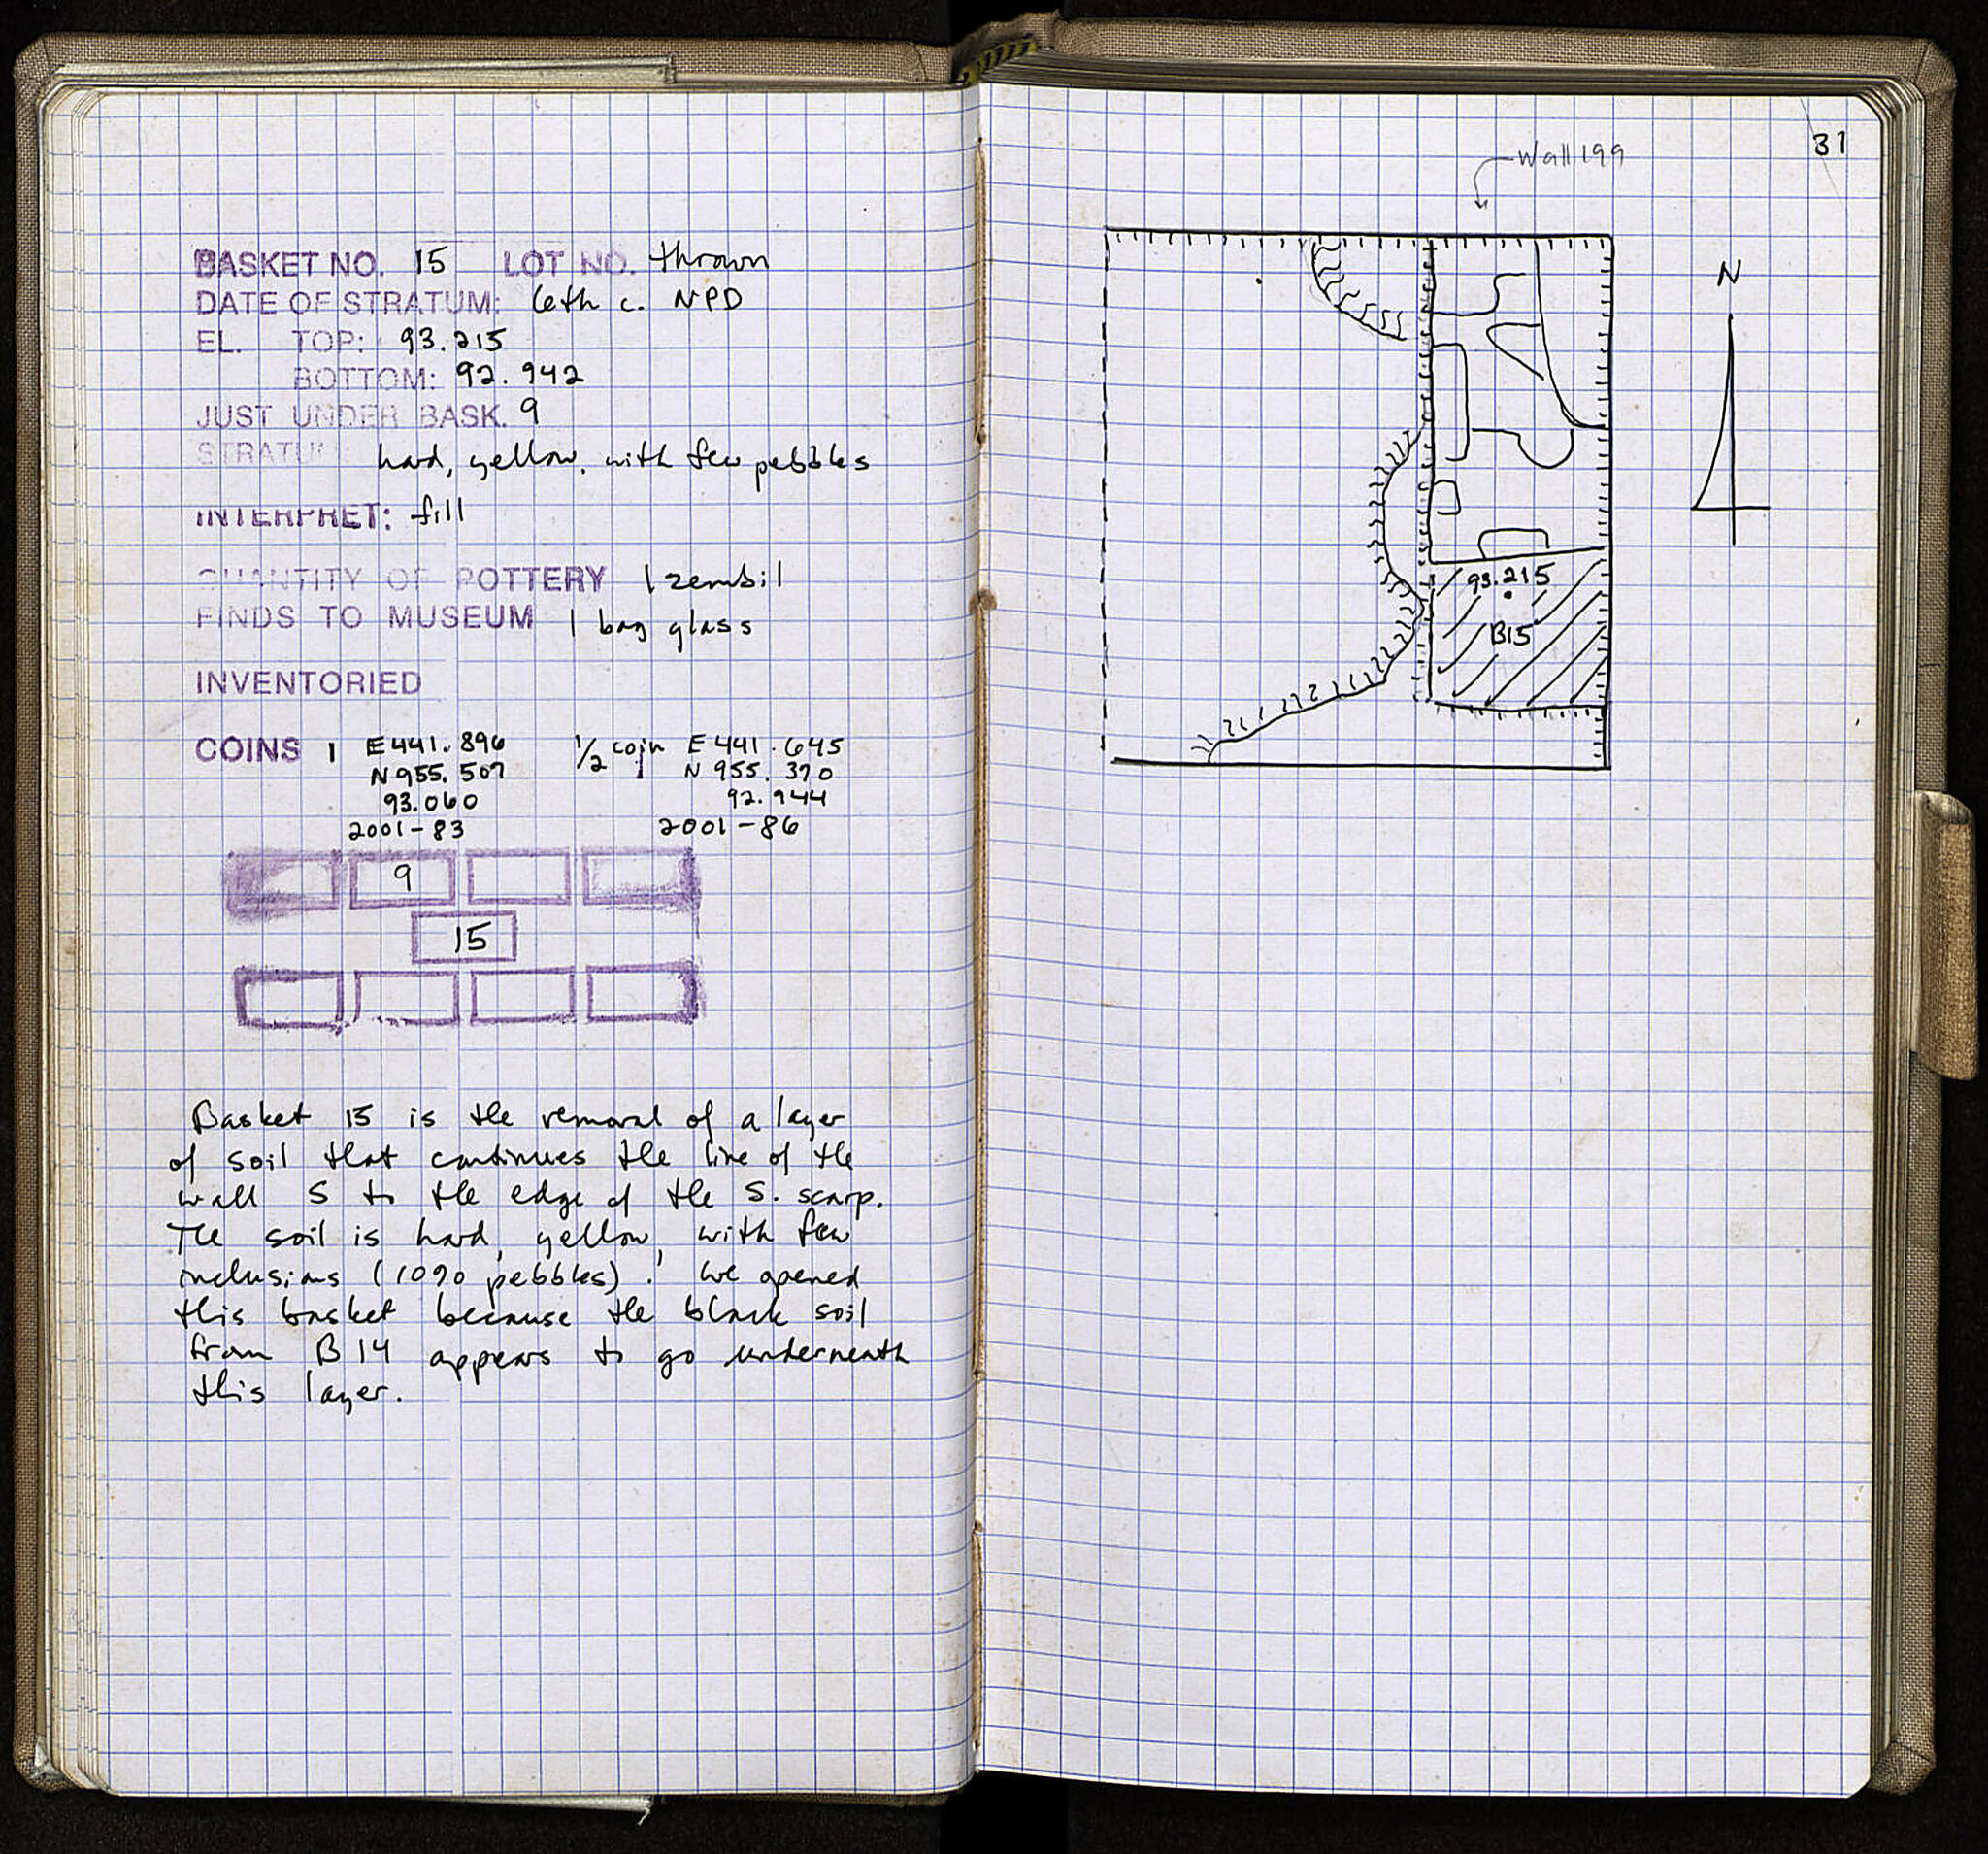 BASKET NO. 15 LOT NO. thrown
DATE OF STRATUM: 6th c. NPD
EL. TOP: 93.215
BOTTOM: 92.942
JUST UNDER BASK. 9
STRATUM: hard, yellow, with few pebbles
INTERPRET: fill
QUANTITY OF POTTERY 1 zembil
FINDS TO MUSEUM 1 bag glass
INVENTORIED
COINS 1 E441.896 1/2 coin E441.645
N955.507 N 955.370
93.060 92.944
2001-83 2001-86
9
15
Basket 15 is the removal of a layer
of soil that continues the line of the
wall S to the edge of the S. scarp.
The soil is hard, yellow, with few
inclusions (10% pebbles). We opened
this basket because the black soil
from B14 appears to go underneath
this layer.
31
Wall 199
N
93.215
B15